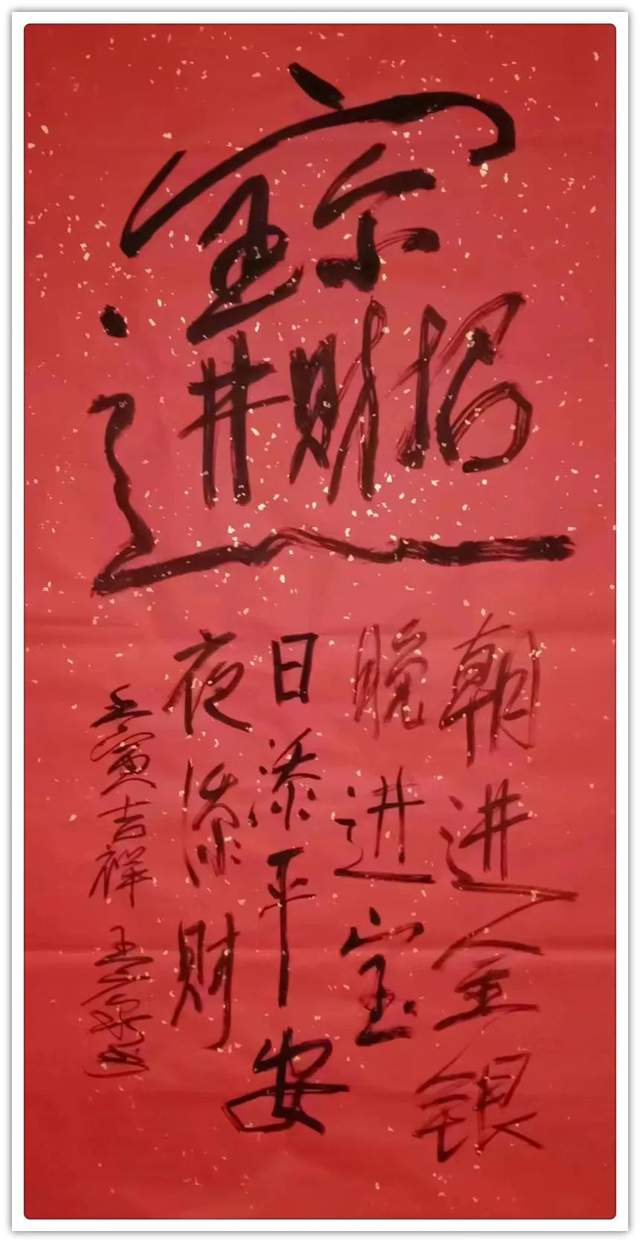 招财进宝
朝进金银
晚进宝
日添平安
夜添财
壬寅吉祥